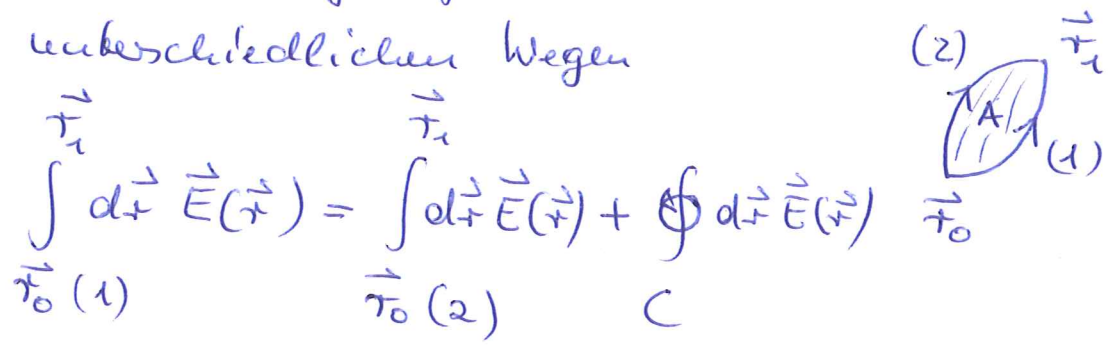 unterschiedlichen Wegen
(2) r⃗₁
A
(1)
r⃗₀
∫_{r⃗₀ (1)}^{r⃗₁} dr⃗ E⃗(r⃗) = ∫_{r⃗₀ (2)}^{r⃗₁} dr⃗ E⃗(r⃗) + ∮_C dr⃗ E⃗(r⃗)